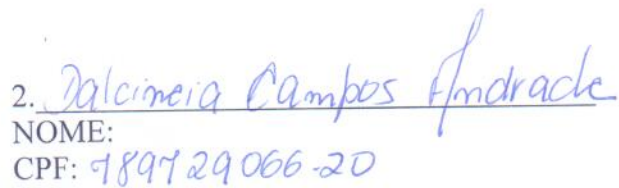 2. Dalcimeia Campos Andrade
NOME:
CPF: 789729066-20